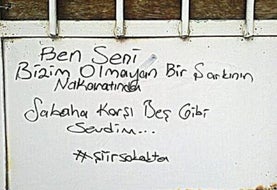 Ben Seni
Bizim Olmayan Bir Şarkının
Nakaratında
Sabaha Karşı Beş Gibi
Sevdim...
#şiirsokakta